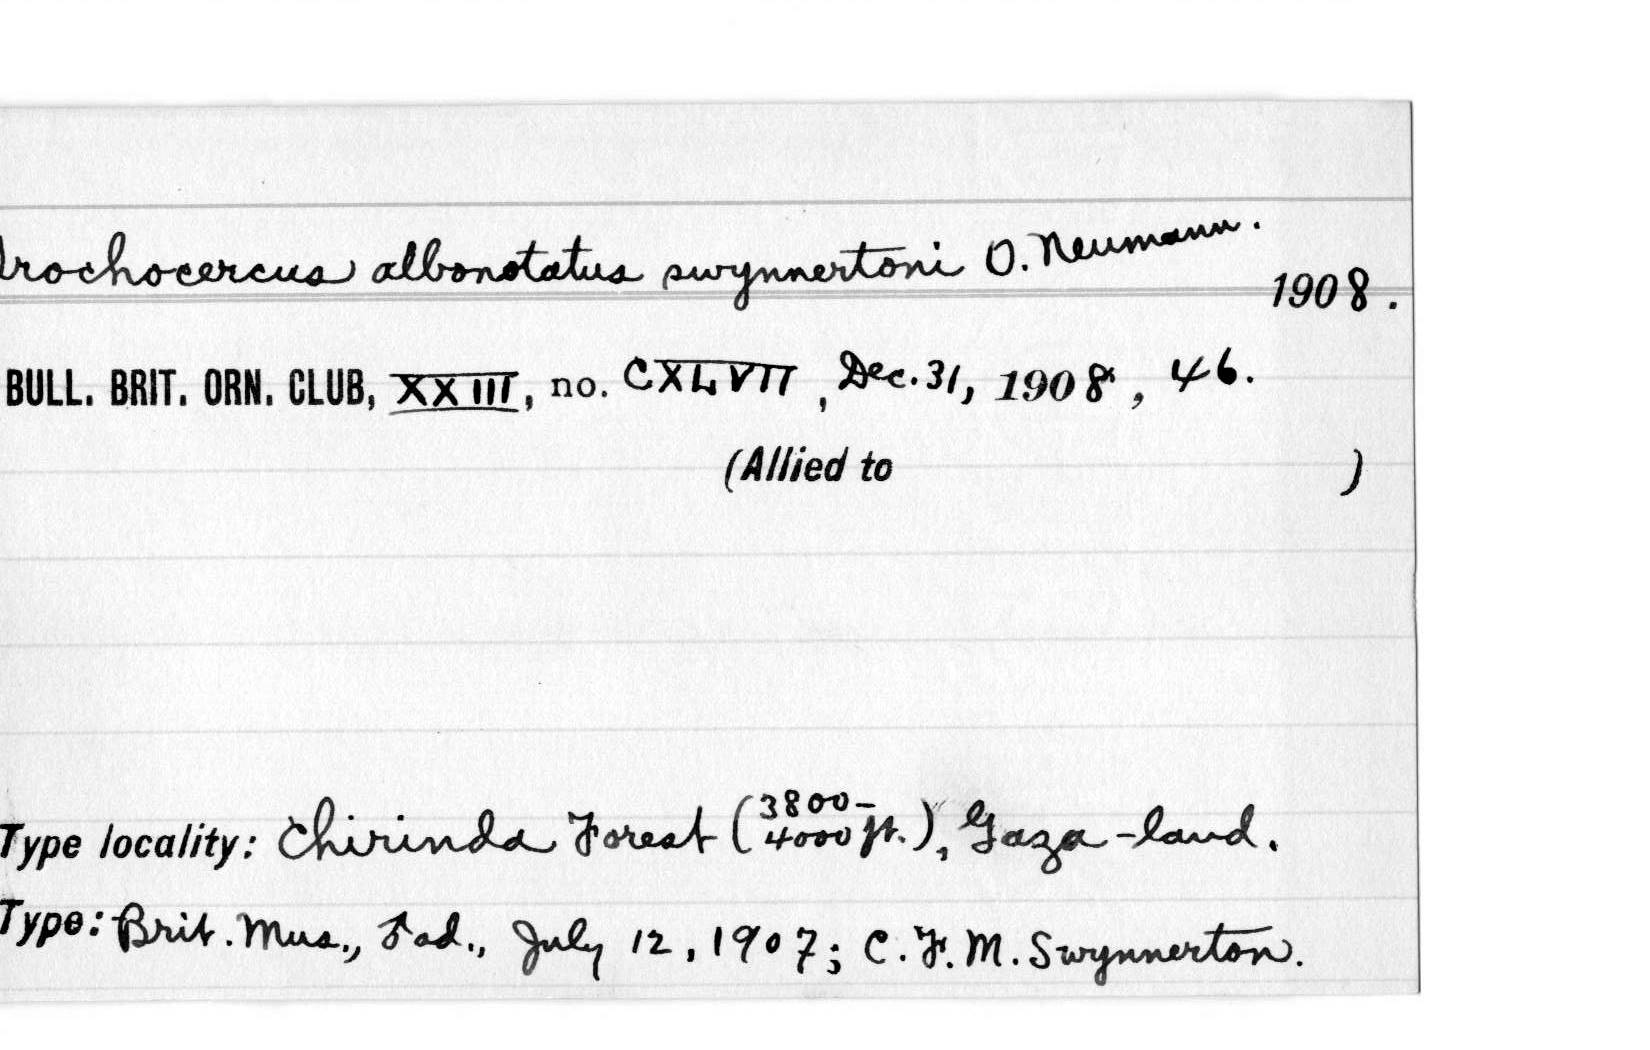 Trochocercus albonotatus swynnertoni O. Neumann.
1908.
BULL. BRIT. ORN. CLUB, XXIII, no. CXLVII, Dec. 31, 1908, 46.
(Allied to )
Type locality: Chirinda Forest (3800-4000 ft.), Gaza-land.
Type: Brit. Mus., ♂ ad., July 12, 1907; C. F. M. Swynnerton.